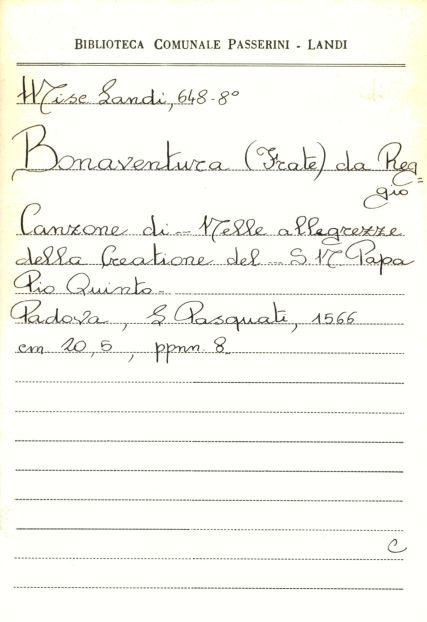 BIBLIOTECA COMUNALE PASSERINI - LANDI
Misc Landi, 648-8°
Bonaventura (Frate) da Reg=
gio
Canzone di - Nelle allegrezze
della Creatione del - S. N Papa
Pio Quinto-
Padova, L Pasquati, 1566
cm 20,5, ppnn. 8
C